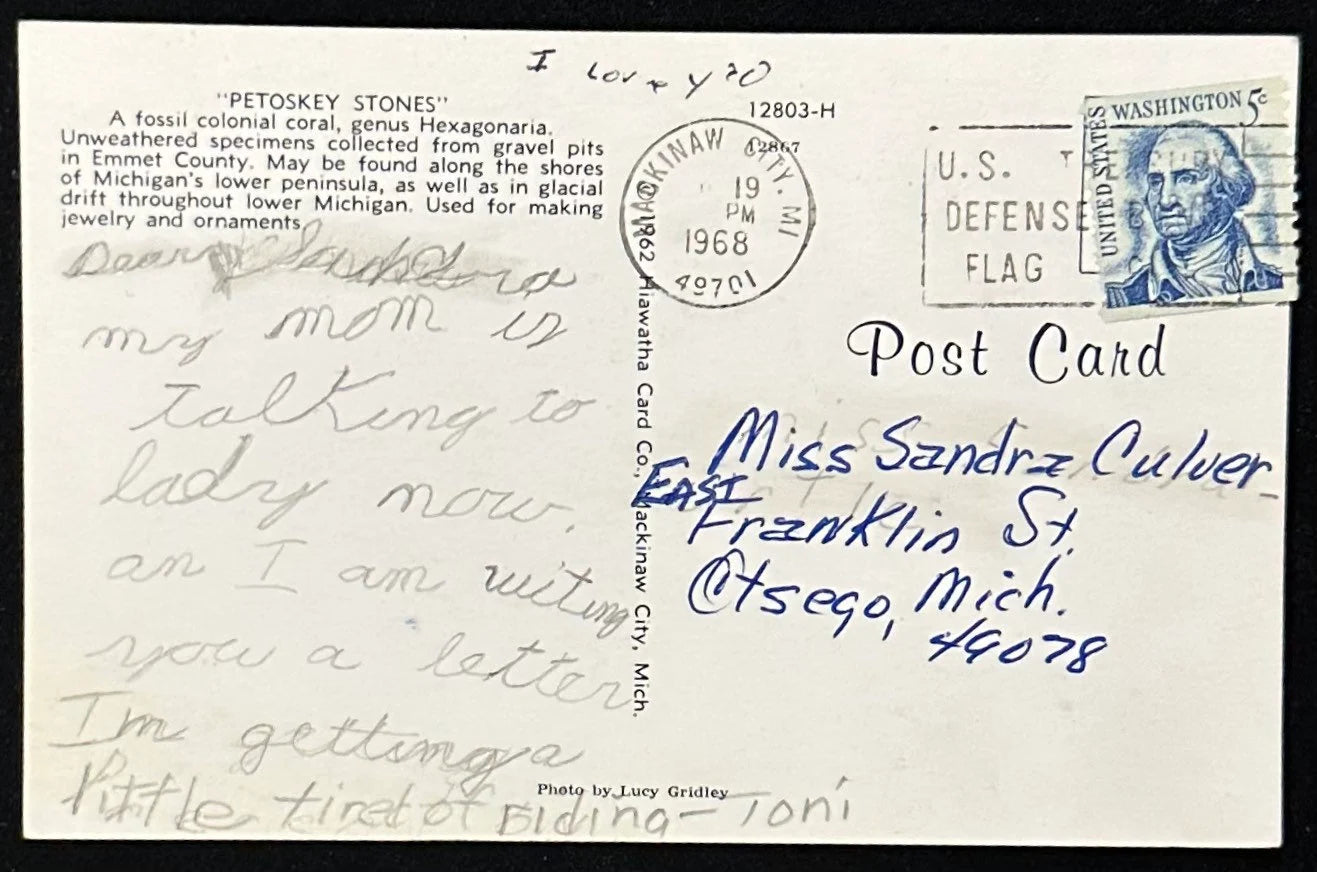 I Love yoU
"PETOSKEY STONES"
A fossil colonial coral, genus Hexagonaria.
Unweathered specimens collected from gravel pits
in Emmet County. May be found along the shores
of Michigan's lower peninsula, as well as in glacial
drift throughout lower Michigan. Used for making
jewelry and ornaments.
Dear
my mom is
talking to
lady now.
an I am witing
you a letter
Im getting a
little tired of Riding - Toni
12803-H
12867
MACKINAW CITY, MI
19
PM
1968
49701
U.S.
DEFENSE
FLAG
UNITED STATES
WASHINGTON 5¢
©1962 Hiawatha Card Co., Mackinaw City, Mich.
Post Card
Miss Sandra Culver
EAST
Franklin St.
Otsego, Mich.
49078
Photo by Lucy Gridley